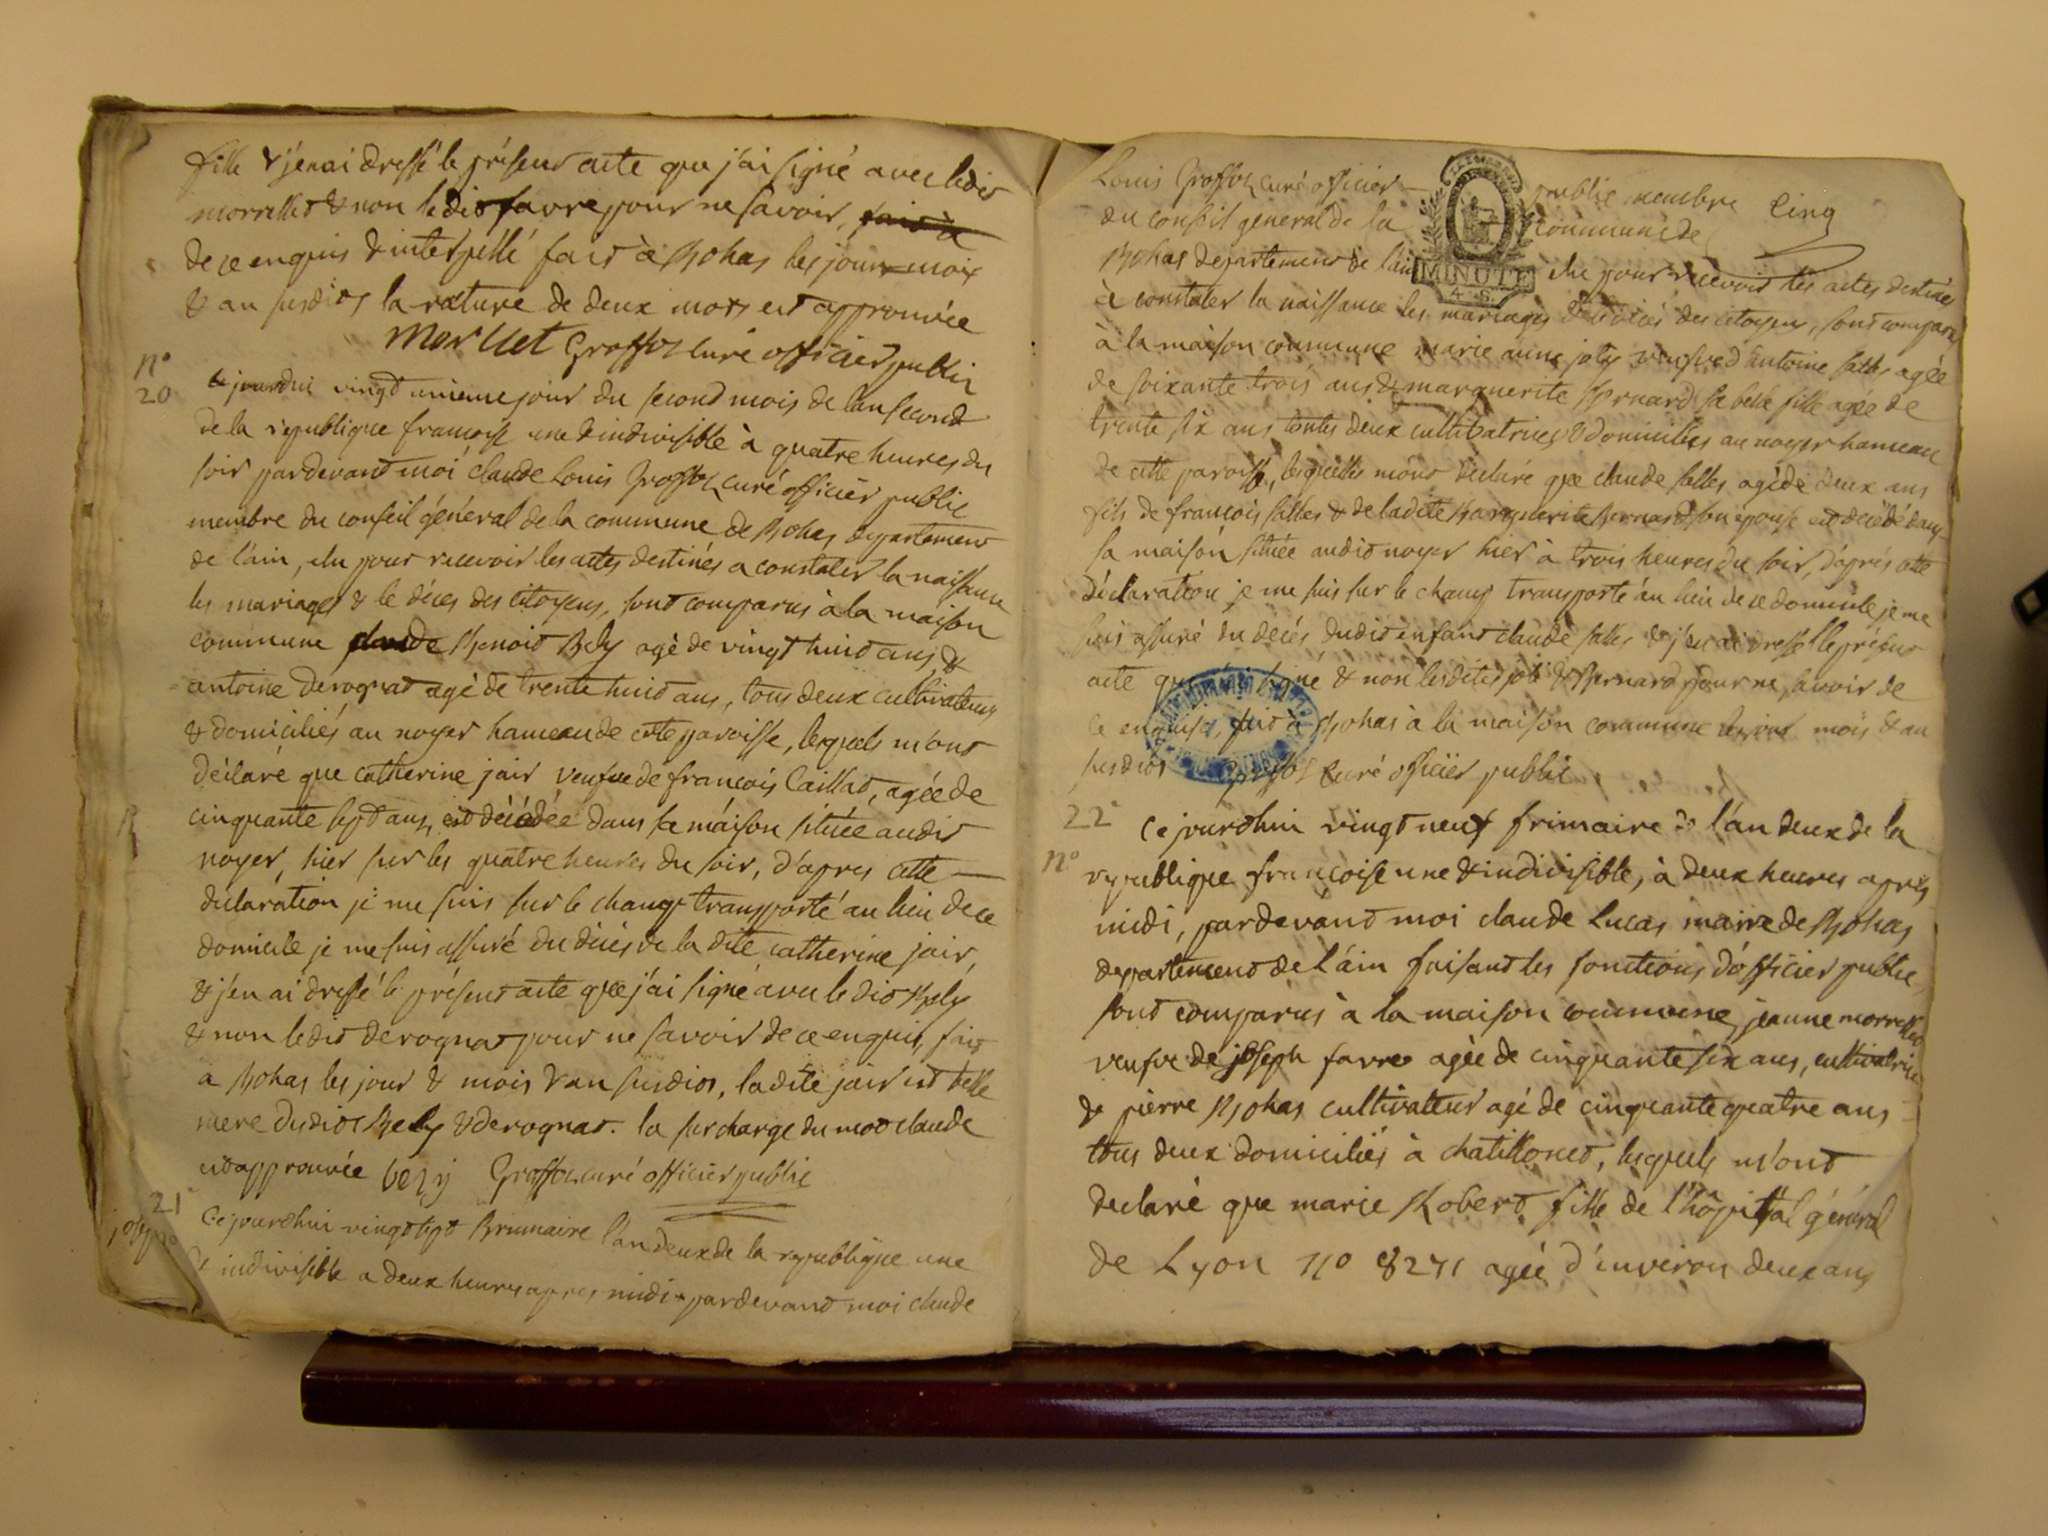 fille & j'en ai dressé le présent acte que j'ai signé avec ledit
morrellet & non ledit favre pour ne savoir, fait à
de ce enquis & interpellé fait à Bohas les jour mois
& an susdits la rature de deux mots est approuvée
Morllet Groffoz curé officier public
n°
20 ce jourdui vingt unieme jour du second mois de l'an second
de la republique françoise une & indivisible à quatre heures du
soir pardevant moi claude Louis Groffoz curé officier public
membre du conseil général de la commune de Bohas departement
de l'ain, elu pour recevoir les actes destinés a constater la naissance
les mariages & le déces des citoyens, sont comparus à la maison
commune claude Benoit Bely agé de vingt huit ans &
antoine derognat agé de trente huit ans, tous deux cultivateurs
& domiciliés au noyer hameau de cette paroisse, lesquels m'ont
déclaré que catherine jair veufve de francois Caillat, agée de
cinquante sept ans, est décédée dans sa maison située audit
noyer, hier sur les quatre heures du soir, d'apres cette
déclaration je me suis sur le champ transporté au lieu de ce
domicile je me suis assuré du décés de la dite catherine jair,
& j'en ai dressé le présent acte que j'ai signé avec le dit Bely
& non ledit derognat pour ne savoir de ce enquis, fait
a Bohas les jour & mois & an susdits, ladite jair est belle
mere dudit Bely & derognat. la surcharge du mot claude
est approuvée bely Groffoz curé officier public
21 Ce jourdhui vingt sept Brumaire l'an deux de la republique une
& indivisible a deux heures apres midi pardevant moi claude
Louis Groffoz curé officier public membre Cinq
du conseil general de la commune de
Bohas departement de l'ain elu pour recevoir les actes destinés
MINUTE
à constater la naissance les mariages & le décés des citoyens, sont comparu
à la maison commune marie anne joly veufve d'antoine salles agée
de soixante trois ans & marguerite Bernard sa belle fille agée de
trente six ans toutes deux cultivatrices & domiciliées au noyer hameau
de cette paroisse, lesquelles m'ont déclaré que claude salles agé de deux ans
fils de françois salles & de ladite marguerite Bernard son épouse est décédé dans
sa maison située audit noyer hier à trois heures du soir, d'après cette
déclaration je me suis sur le champ transporté au lieu de ce domicile je me
suis assuré du decés dudit enfant claude salles & j'en ai dressé le présent
acte que j'ai signé & non lesdites joli & Bernard pour ne savoir de
ce enquises, fait à Bohas à la maison commune les jour mois & an
susdits Groffoz curé officier public
22 Ce jourdhui vingt neuf frimaire l'an deux de la
n° republique françoise une & indivisible, à deux heures après
midi, pardevant moi claude Lucas maire de Bohas
departement de l'ain faisant les fonctions d'officier public,
sont comparus à la maison commune, jeanne morrellet
veufve de joseph favre agée de cinquante six ans, cultivatrice
& pierre Bohas cultivateur agé de cinquante quatre ans
tous deux domiciliés à chatillonet, lesquels m'ont
declaré que marie Robert fille de l'hôpital général
de Lyon n° 8271 agée d'environ deux ans